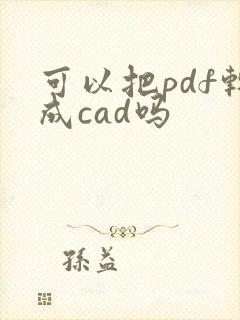 可以把pdf转
成cad吗
孫益